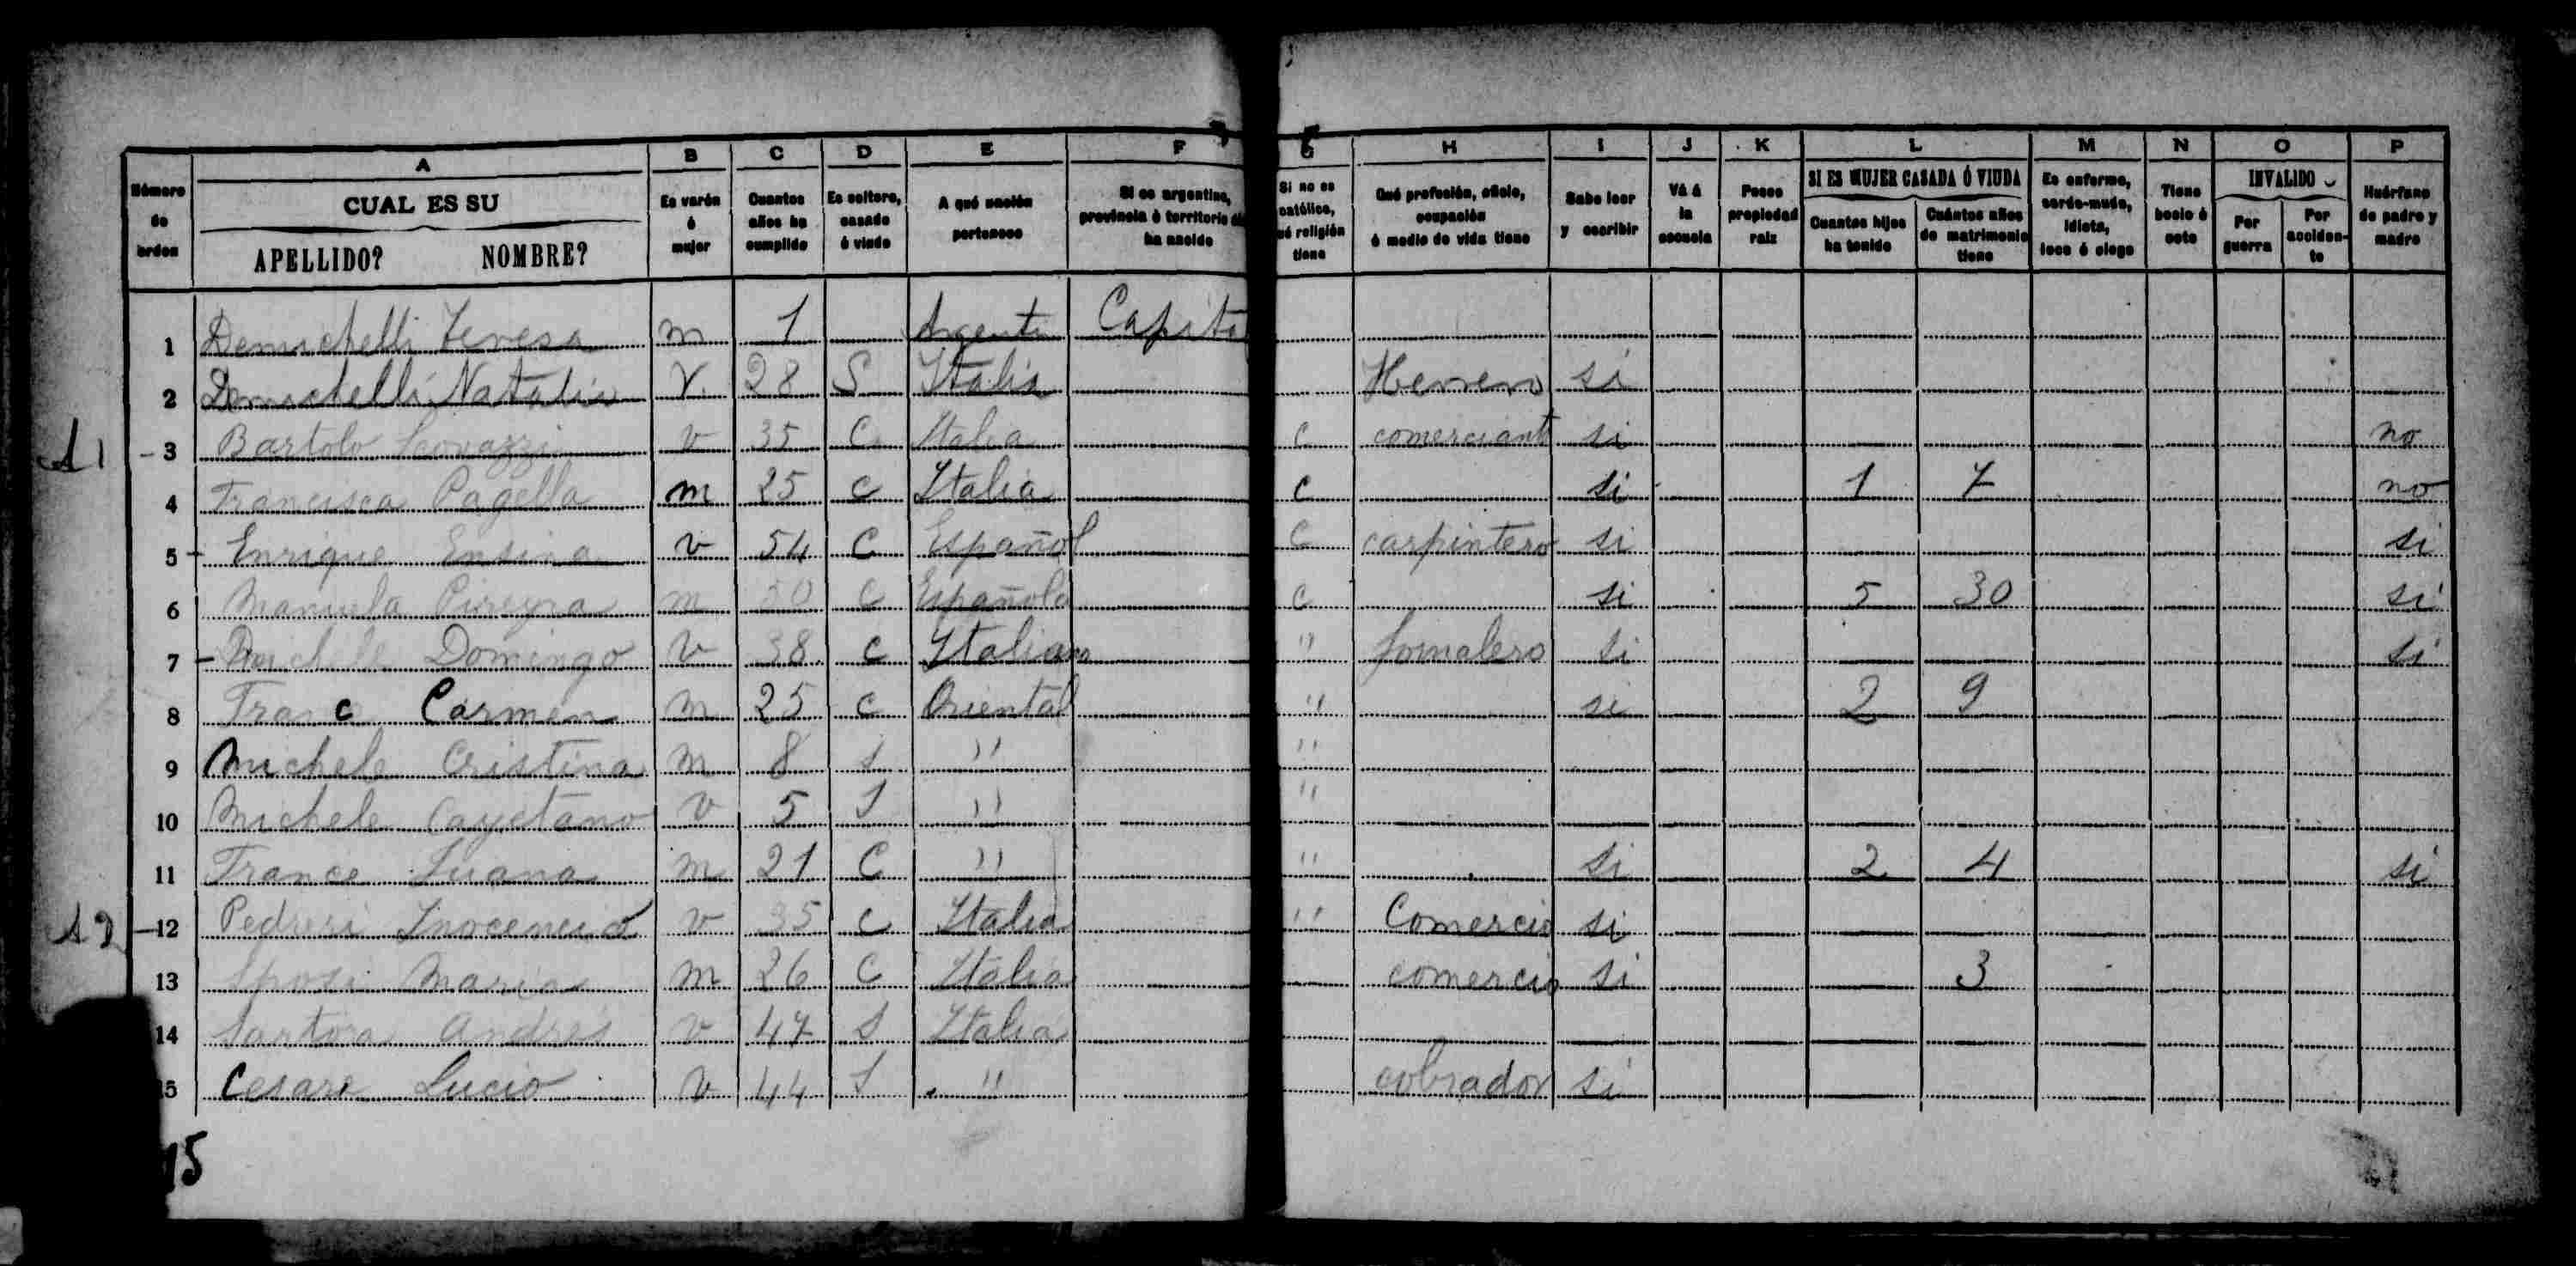 A B C D E F G H I J K L M N O P
Número de orden
CUAL ES SU
APELLIDO? NOMBRE?
Es varón ó mujer
Cuantos años ha cumplido
Es soltero, casado ó viudo
A qué nación pertenece
Si es argentino, provincia ó territorio ha nacido
Si no es católico, qué religión tiene
Qué profesión, oficio, ocupación ó medio de vida tiene
Sabe leer y escribir
Vá á la escuela
Posee propiedad raiz
SI ES MUJER CASADA Ó VIUDA
Cuantos hijos ha tenido
Cuántos años de matrimonio tiene
Es enfermo, sordo-mudo, idiota, loco ó ciego
Tiene bocio ó coto
INVALIDO
Por guerra
Por acciden-te
Huérfano de padre y madre
1 Demichelli Teresa m 1 Argenti Capita
2 Demichelli Natalio V. 28 S Italia Herrero si
11 - 3 Bartolo v 35 C Italia C comerciant si no
4 Francisca Pagella m 25 c Italia c si 1 7 no
5 - Enrique Ensina v 54 C Español C carpintero si si
6 Manuela Pireyra m 50 C Española C si 5 30 si
7 - Michele Domingo v 38 c Italiano " Jornalero si si
8 Franc Carmen m 25 c Oriental " si 2 9
9 Michele Cristina m 8 s " "
10 Michele Cayetano v 5 s " "
11 France Juana m 21 C " " si 2 4 si
12 —12 Pedreri Inocencio v 35 c Italia " Comercio si
13 Sposi Maria m 26 C Italia comercio si 3
14 Sartora Andrés v 47 s Italia
15 Cesare Lucio v 44 s " cobrador si
15